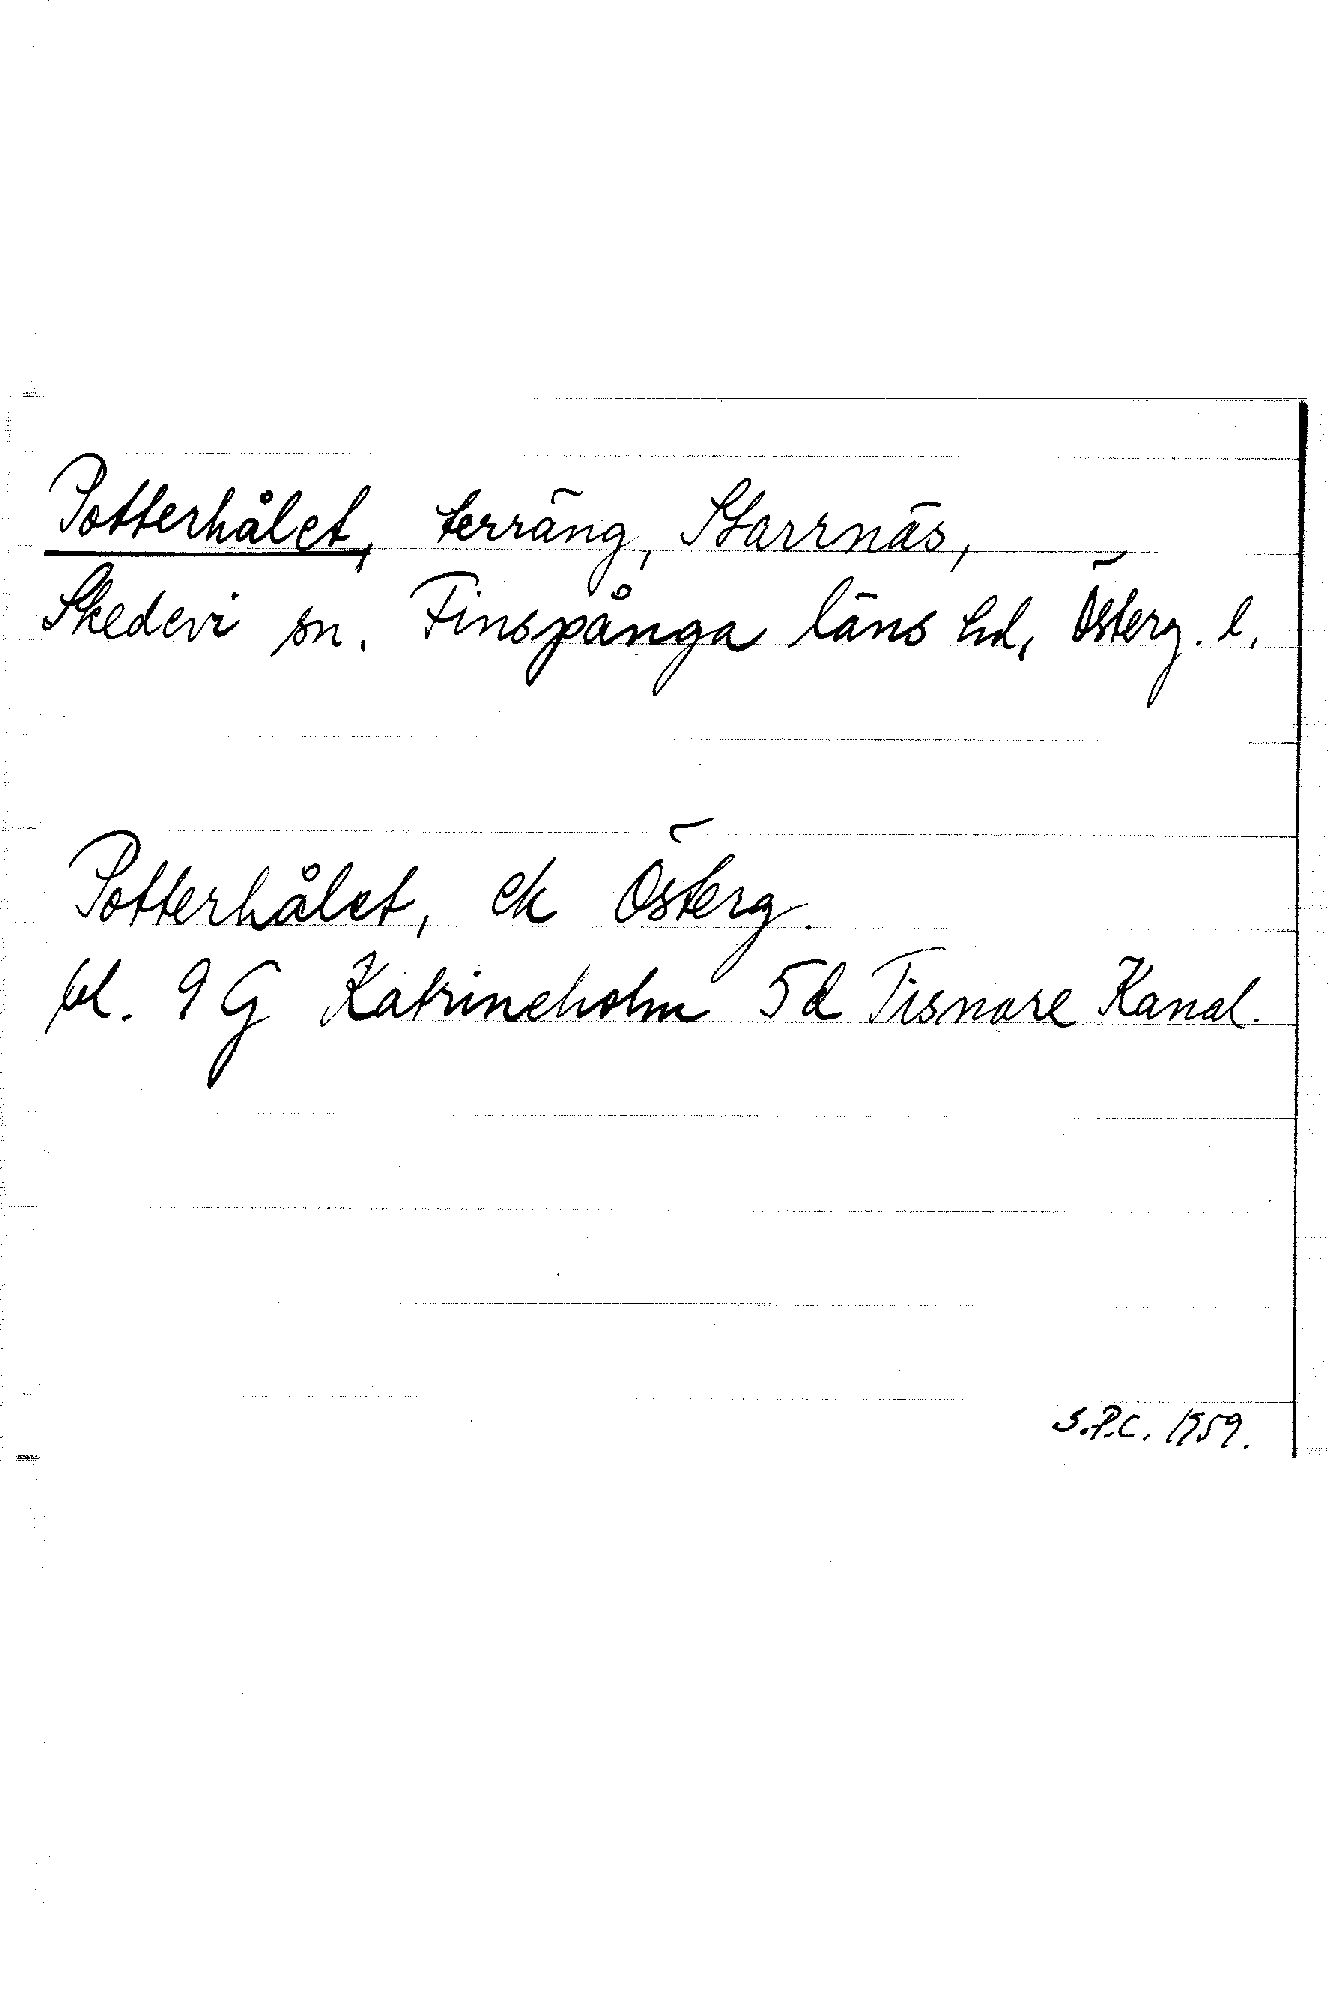 Potterhålet, terräng, Starrnäs,
Skedevi sn. Finspånga läns hd, Österg. l.
Potterhålet, ek Österg.
bl. 9 G Katrineholm 5d Tisnare Kanal.
S.P.C. 1959.